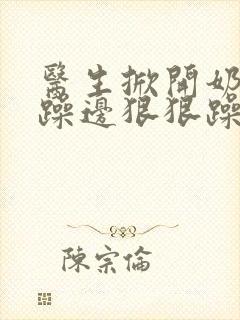 醫生掀開奶
躁邊狠狠躁
陳宗倫